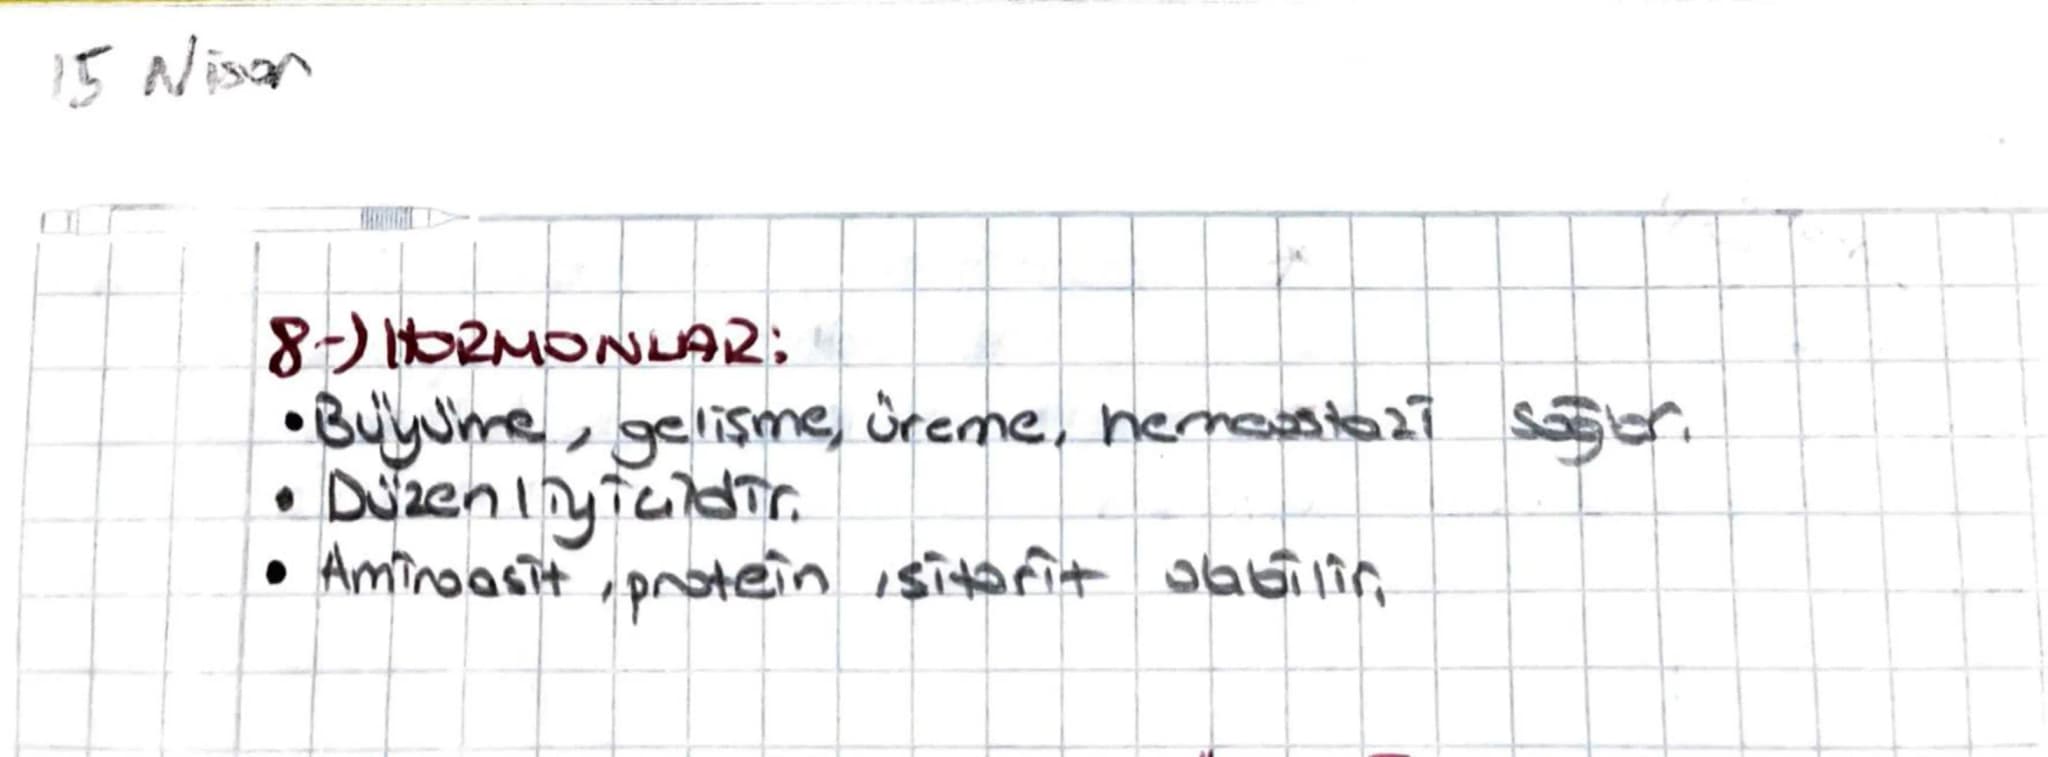 15 Nisan
8-) HORMONLAR:
• Büyüme, gelişme, üreme, hemeostazi sağlar.
• Düzenliyicidir.
• Aminoasit, protein, sitorit olabilir.